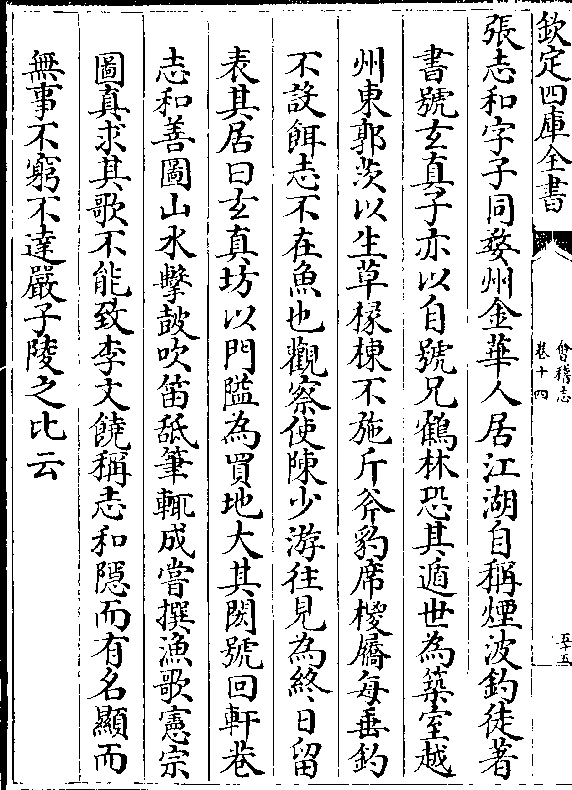 欽定四庫全書
會稽志
卷十四
五十五
張志和字子同婺州金華人居江湖自稱煙波釣徒著
書號玄真子亦以自號兄鶴林恐其遁世為築室越
州東郭茨以生草椽棟不施斤斧豹席椶屩每垂釣
不設餌志不在魚也觀察使陳少游往見為終日留
表其居曰玄真坊以門隘為買地大其閎號回軒巷
志和善圖山水擊鼓吹笛䑛筆輙成嘗撰漁歌憲宗
圖真求其歌不能致李文饒稱志和隱而有名顯而
無事不窮不達嚴子陵之比云